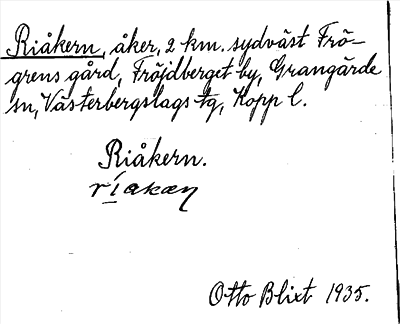 Riåkern, åker, 2 km. sydväst Frö-
grens gård, Fröjdberget by, Grangärde
sn, Västerbergslags tg, Kopp l.
Riåkern.
ríakæn
Otto Blixt 1935.